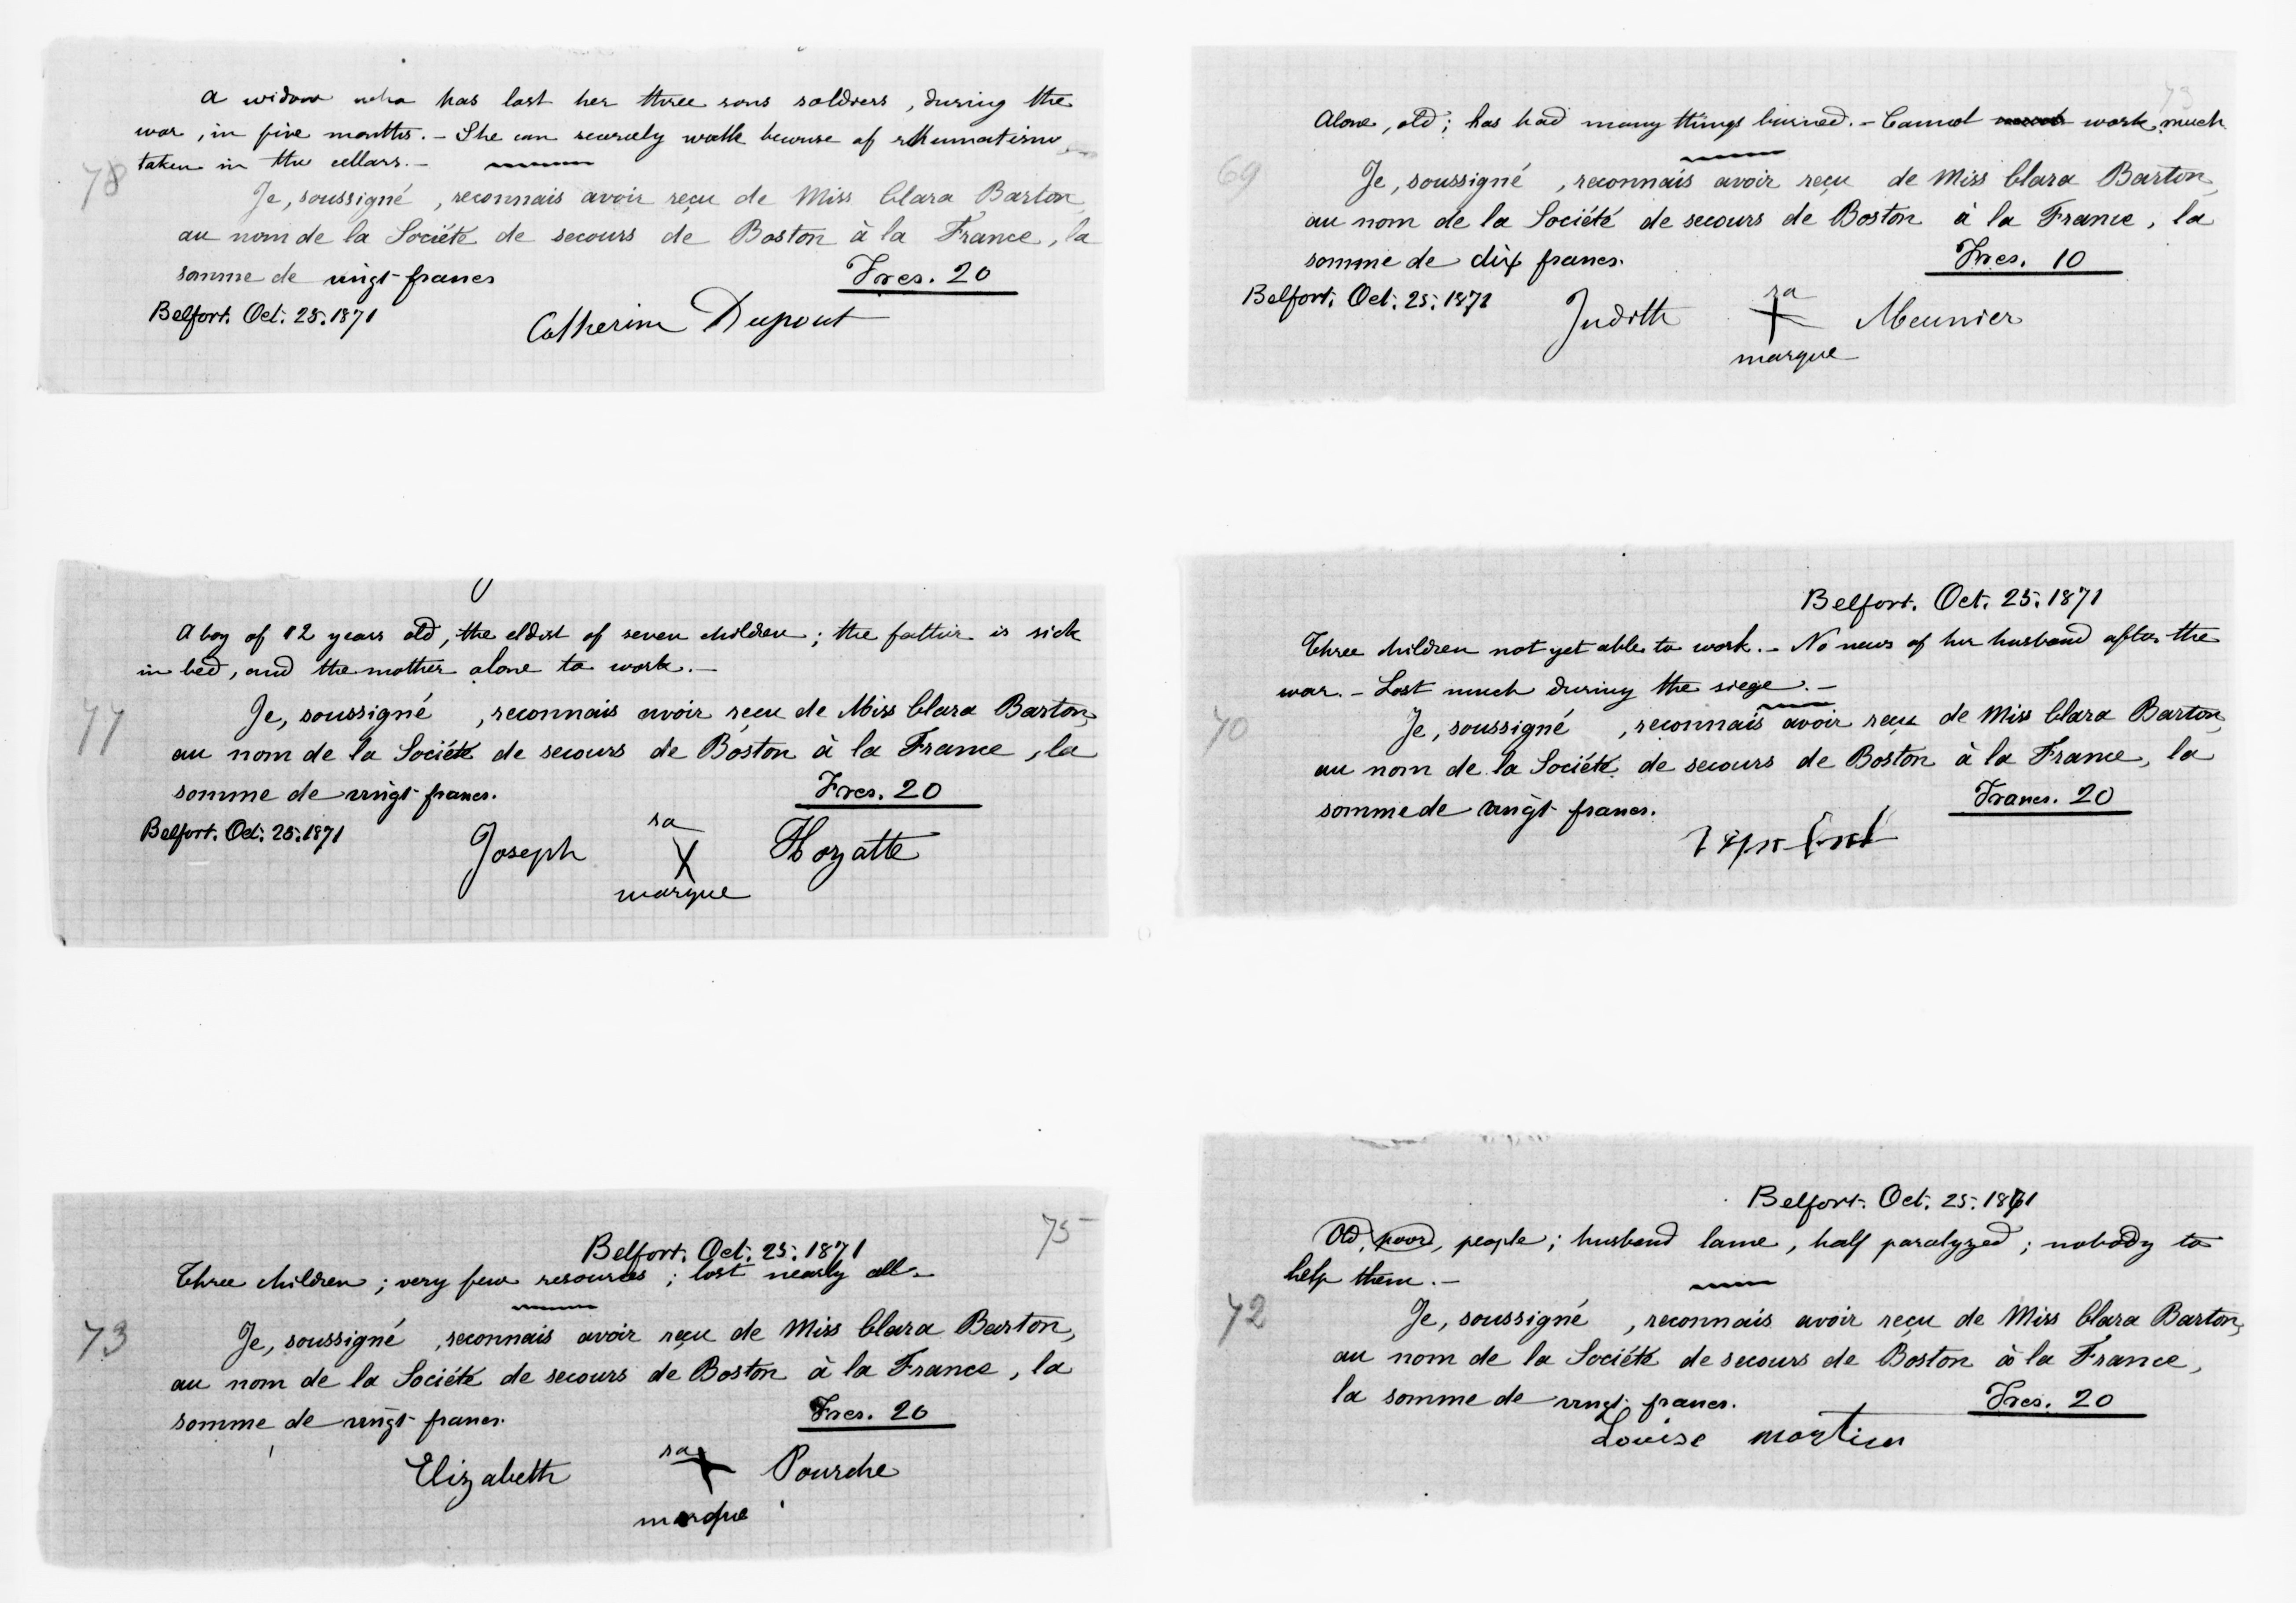 A widow who has lost her three sons soldiers, during the
war, in five months. - She can scarcely walk because of rheumatism
taken in the cellars. -
78
Je, soussigné , reconnais avoir reçu de Miss Clara Barton,
au nom de la Société de secours de Boston à la France, la
somme de vingt francs Frcs. 20
Belfort. Oct. 25. 1871
Catherine Dupont
A boy of 12 years old, the eldest of seven children; the father is sick
in bed, and the mother alone to work. -
77
Je, soussigné , reconnais avoir reçu de Miss Clara Barton,
au nom de la Société de secours de Boston à la France, la
somme de vingt francs. Frcs. 20
Belfort. Oct. 25. 1871
Joseph sa X marque Hozatte
75
Belfort. Oct. 25. 1871
Three children; very few resources; lost nearly all. -
73
Je, soussigné , reconnais avoir reçu de Miss Clara Barton,
au nom de la Société de secours de Boston à la France, la
somme de vingt francs. Frcs. 20
Elizabeth sa X marque Pourche
73
Alone, old; has had many things burned. - Cannot work much
69
Je, soussigné , reconnais avoir reçu de Miss Clara Barton,
au nom de la Société de secours de Boston à la France, la
somme de dix francs. Frcs. 10
Belfort. Oct. 25. 1871
Judith sa X marque Meunier
Belfort. Oct. 25. 1871
Three children not yet able to work. - No news of her husband after the
war. - Lost much during the siege. -
70
Je, soussigné , reconnais avoir reçu de Miss Clara Barton,
au nom de la Société de secours de Boston à la France, la
somme de vingt francs. Francs. 20
Belfort. Oct. 25. 1871
Old, poor, people; husband lame, half paralyzed; nobody to
help them. -
72
Je, soussigné , reconnais avoir reçu de Miss Clara Barton,
au nom de la Société de secours de Boston à la France,
la somme de vingt francs. Frcs. 20
Louise martin